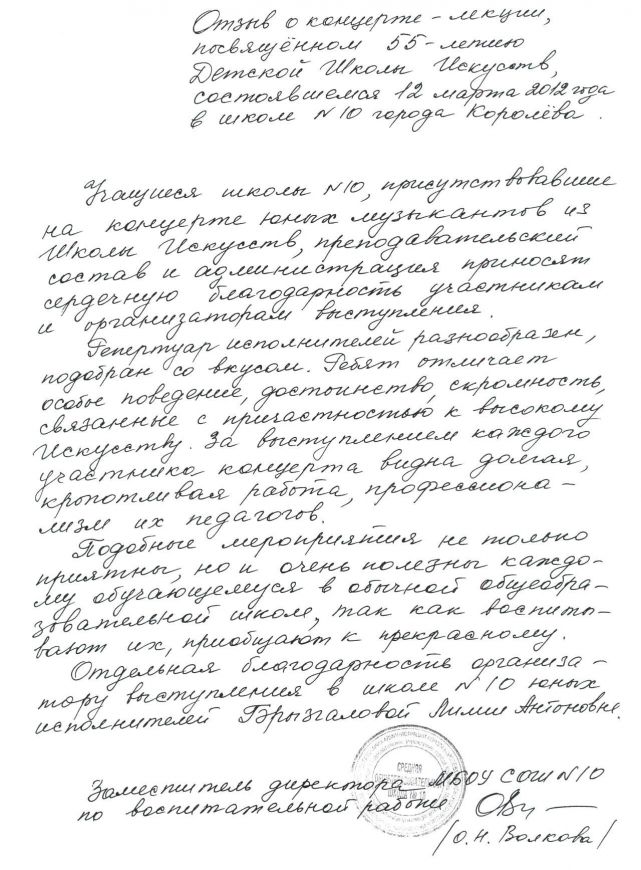 Отзыв о концерте-лекции,
посвящённом 55-летию
Детской Школы Искусств,
состоявшемся 12 марта 2012 года
в школе №10 города Королёва.
Учащиеся школы №10, присутствовавшие
на концерте юных музыкантов из
Школы Искусств, преподавательский
состав и администрация приносят
сердечную благодарность участникам
и организаторам выступления.
Репертуар исполнителей разнообразен,
подобран со вкусом. Ребят отличает
особое поведение, достоинство, скромность,
связанные с причастностью к высокому
Искусству. За выступлением каждого
участника концерта видна долгая,
кропотливая работа, профессиона-
лизм их педагогов.
Подобные мероприятия не только
приятны, но и очень полезны каждо-
му обучающемуся в обычной общеобра-
зовательной школе, так как воспиты-
вают их, приобщают к прекрасному.
Отдельная благодарность организа-
тору выступления в школе №10 юных
исполнителей Брызгаловой Лилии Антоновне.
Заместитель директора МБОУ СОШ №10
по воспитательной работе
/О.Н. Волкова/
СРЕДНЯЯ